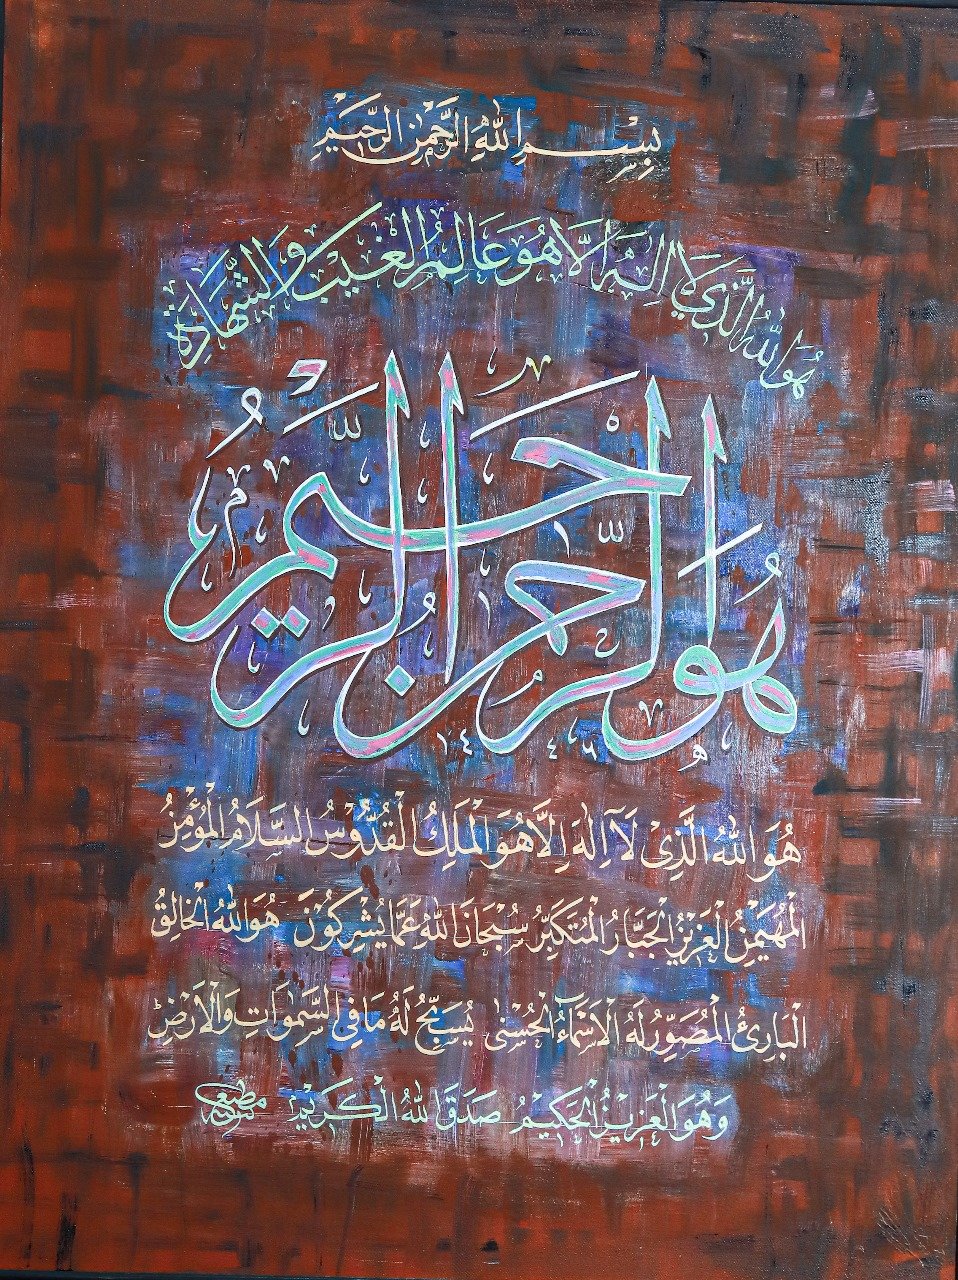 بِسْمِ اللهِ الرَّحْمٰنِ الرَّحِيْمِ
هُوَ اللهُ الَّذِي لَا اِلٰهَ اِلَّا هُوَ عَالِمُ الْغَيْبِ وَالشَّهَادَةِ
هُوَ الرَّحْمٰنُ الرَّحِيمُ
هُوَ اللهُ الَّذِىْ لَآ اِلٰهَ اِلَّا هُوَ الْمَلِكُ الْقُدُّوْسُ السَّلَامُ الْمُؤْمِنُ
الْمُهَيْمِنُ الْعَزِيْزُ الْجَبَّارُ الْمُتَكَبِّرُ سُبْحَانَ اللهِ عَمَّا يُشْرِكُوْنَ هُوَ اللهُ الْخَالِقُ
الْبَارِئُ الْمُصَوِّرُ لَهُ الْاَسْمَآءُ الْحُسْنٰى يُسَبِّحُ لَهُ مَا فِى السَّمٰوَاتِ وَالْاَرْضِ
وَهُوَ الْعَزِيْزُ الْحَكِيْمُ صَدَقَ اللهُ الْكَرِيْمُ